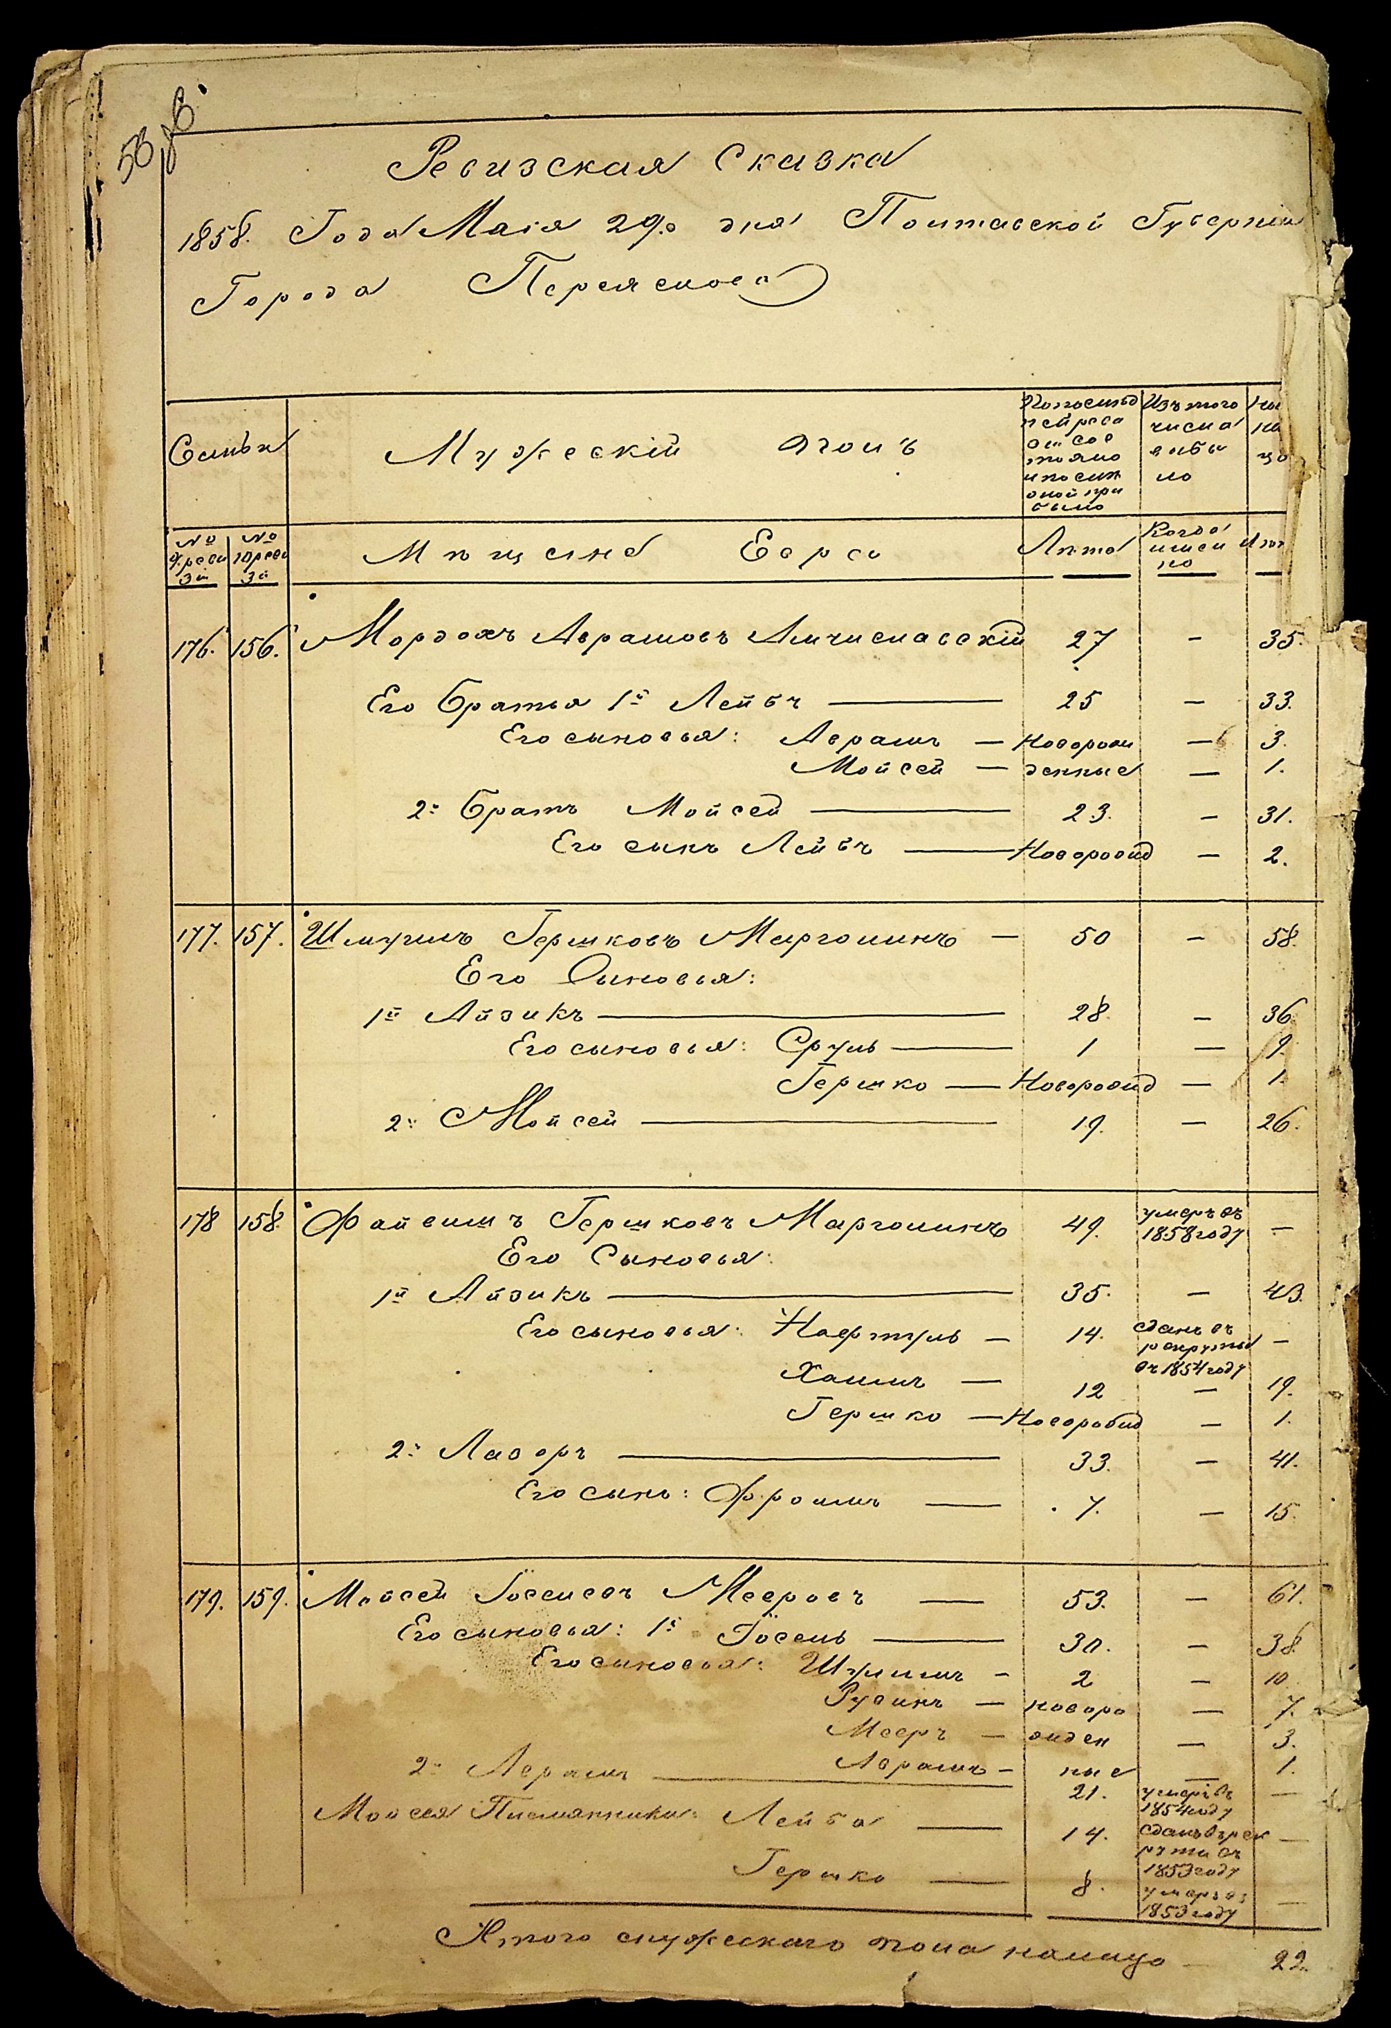 Ревизская Сказка
1858. Года Маія 29го дня Полтавской Губерніи
Города Переяслова
Семьи
Мужескій полъ
По послед
ней реви
Изъ того
числа
выбы
ло
Мѣщане Евреи
Лѣта
Когда
имен
но
№
№
176. 156. Мордохъ Аврамовъ Амчиславскій 27 — 35.
Его братья 1й Лейбъ — 25 — 33.
Его сыновья: Аврамъ — Новорож — 3.
Мойсей — денные — 1.
2й Братъ Мойсей — 23. — 31.
Его сынъ Лейбъ — Новорожд — 2.
177. 157. Шмуилъ Гершковъ Марголинъ — 50 — 58.
Его Сыновья:
1й Айзикъ — 28. — 36.
Его сыновья: Сруль — 1 — 9.
Гершко — Новорожд — 1.
2й Мойсей — 19. — 26.
178 158. Файвишъ Гершковъ Марголинъ 49. умеръ въ 1858 году —
Его Сыновья:
1й Айзикъ — 35. — 43.
Его сыновья: Нафтуль — 14. сданъ въ рекруты въ 1854 году —
Хаимъ — 12 — 19.
Гершко — Новорожд — 1.
2й Лазоръ — 33. — 41.
Его сынъ: Фроимъ — 7. — 15.
179. 159. Мойсей Іоселевъ Мееровъ — 53. — 61.
Его сыновья: 1й Іосель — 30. — 38.
Его сыновья: Шулимъ — 2 — 10
Рувинъ — новоро — 7.
Мееръ — жден — 3.
Аврамъ — ные — 1.
2й Аврамъ — 21. умеръ въ 1854 году —
Мойсея Племянники: Лейба — 14. сданъ въ рек руты въ 1853 году —
Гершко — 8. умеръ въ 1853 году —
Итого мужескаго пола налицо — 22.